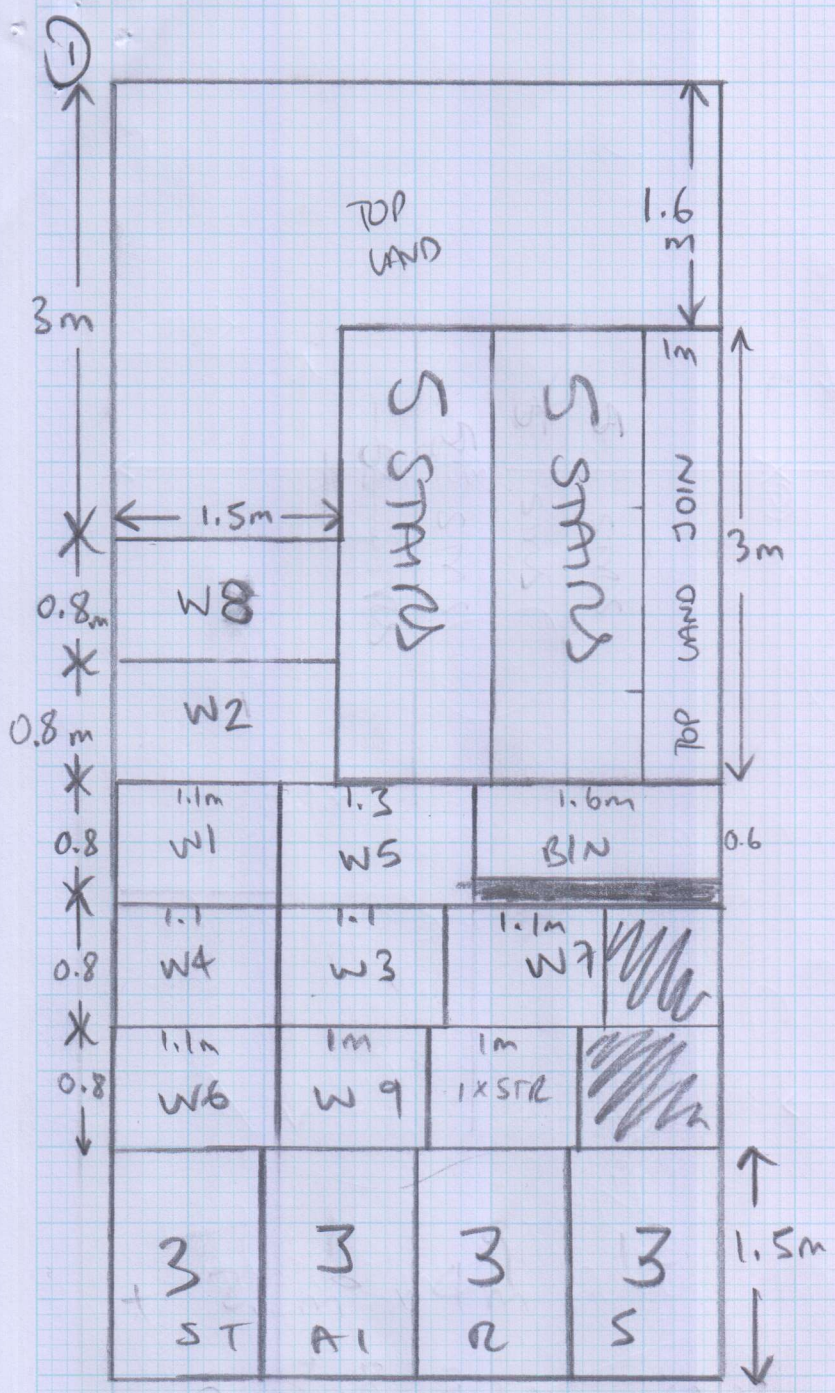 1
TOP
LAND
1.6
m
3m
1m
5 STAIRS
5 STAIRS
TOP LAND JOIN
3m
1.5m
W8
0.8m
W2
0.8m
1.1m
W1
1.3
W5
1.6m
BIN
0.6
0.8
1.1
W4
1.1
W3
1.1m
W7
0.8
1.1m
W6
1m
W9
1m
1XSTR
0.8
3
3
3
3
1.5m
ST
AI
R
S